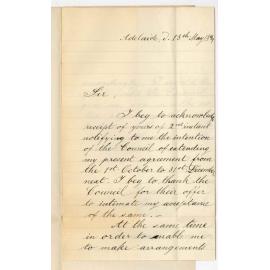 Adelaide, 13th May 189
Sir,
I beg to acknowledge
receipt of yours of 2nd instant
notifying to me the intention
of the Council of extending
my present agreement from
the 1st October to 31st December
next. I beg to thank the
Council for their offer
to intimate my acceptance
of the same. —
At the same time
in order to enable me
to make arrangements